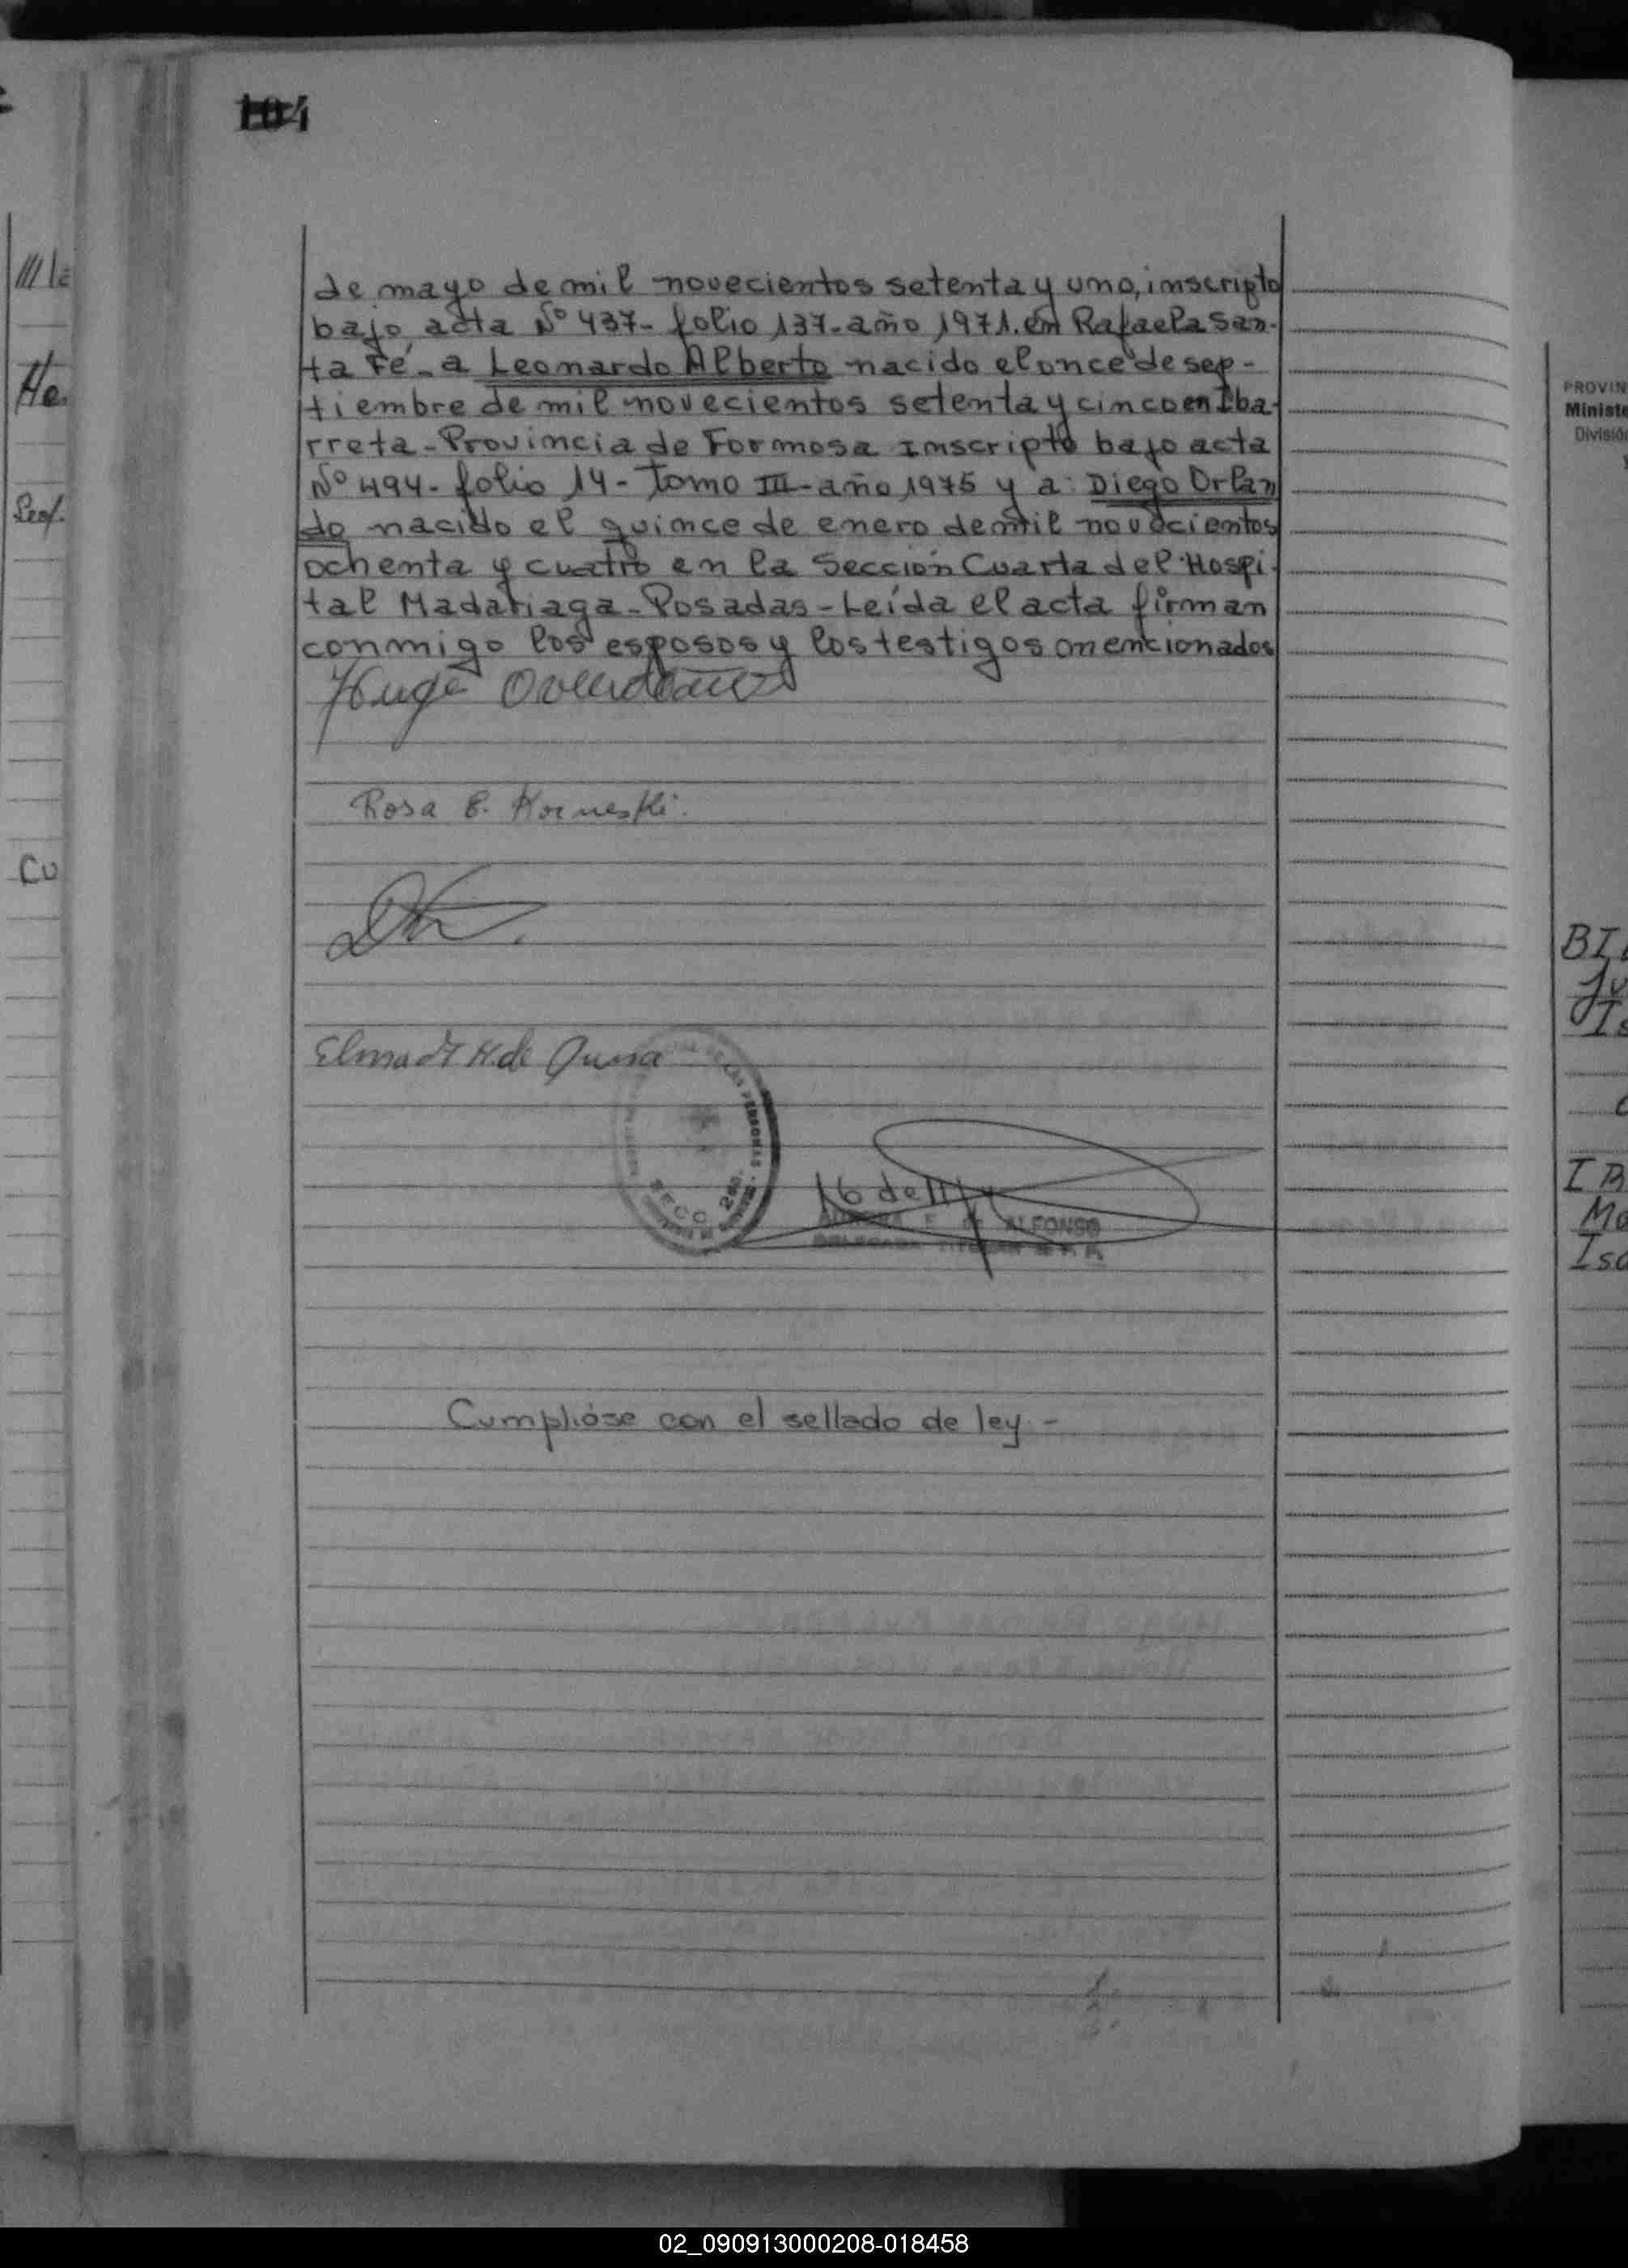 104
de mayo de mil novecientos setenta y uno, inscripto
bajo acta Nº 437- folio 137- año 1971. en Rafaela San-
ta Fé - a Leonardo Alberto nacido el once de sep-
tiembre de mil novecientos setenta y cinco en Iba-
rreta - Provincia de Formosa Inscripto bajo acta
Nº 494- folio 14- Tomo III- año 1975 y a: Diego Orlan
do nacido el quince de enero de mil novecientos
ochenta y cuatro en la Sección Cuarta del Hospi-
tal Madariaga - Posadas - Leída el acta firman
conmigo los esposos y los testigos mencionados
Hugo
Rosa E. Korneski.
Elma H. de
DE LAS PERSONAS
SECC. 2
E. de ALFONSO
DELEGADA TITULAR
Cumplióse con el sellado de ley -
He
Leof.
Cu
PROVIN
Ministe
Divisió
BI
Ju
Is
I B
Ma
Isa
02_090913000208-018458